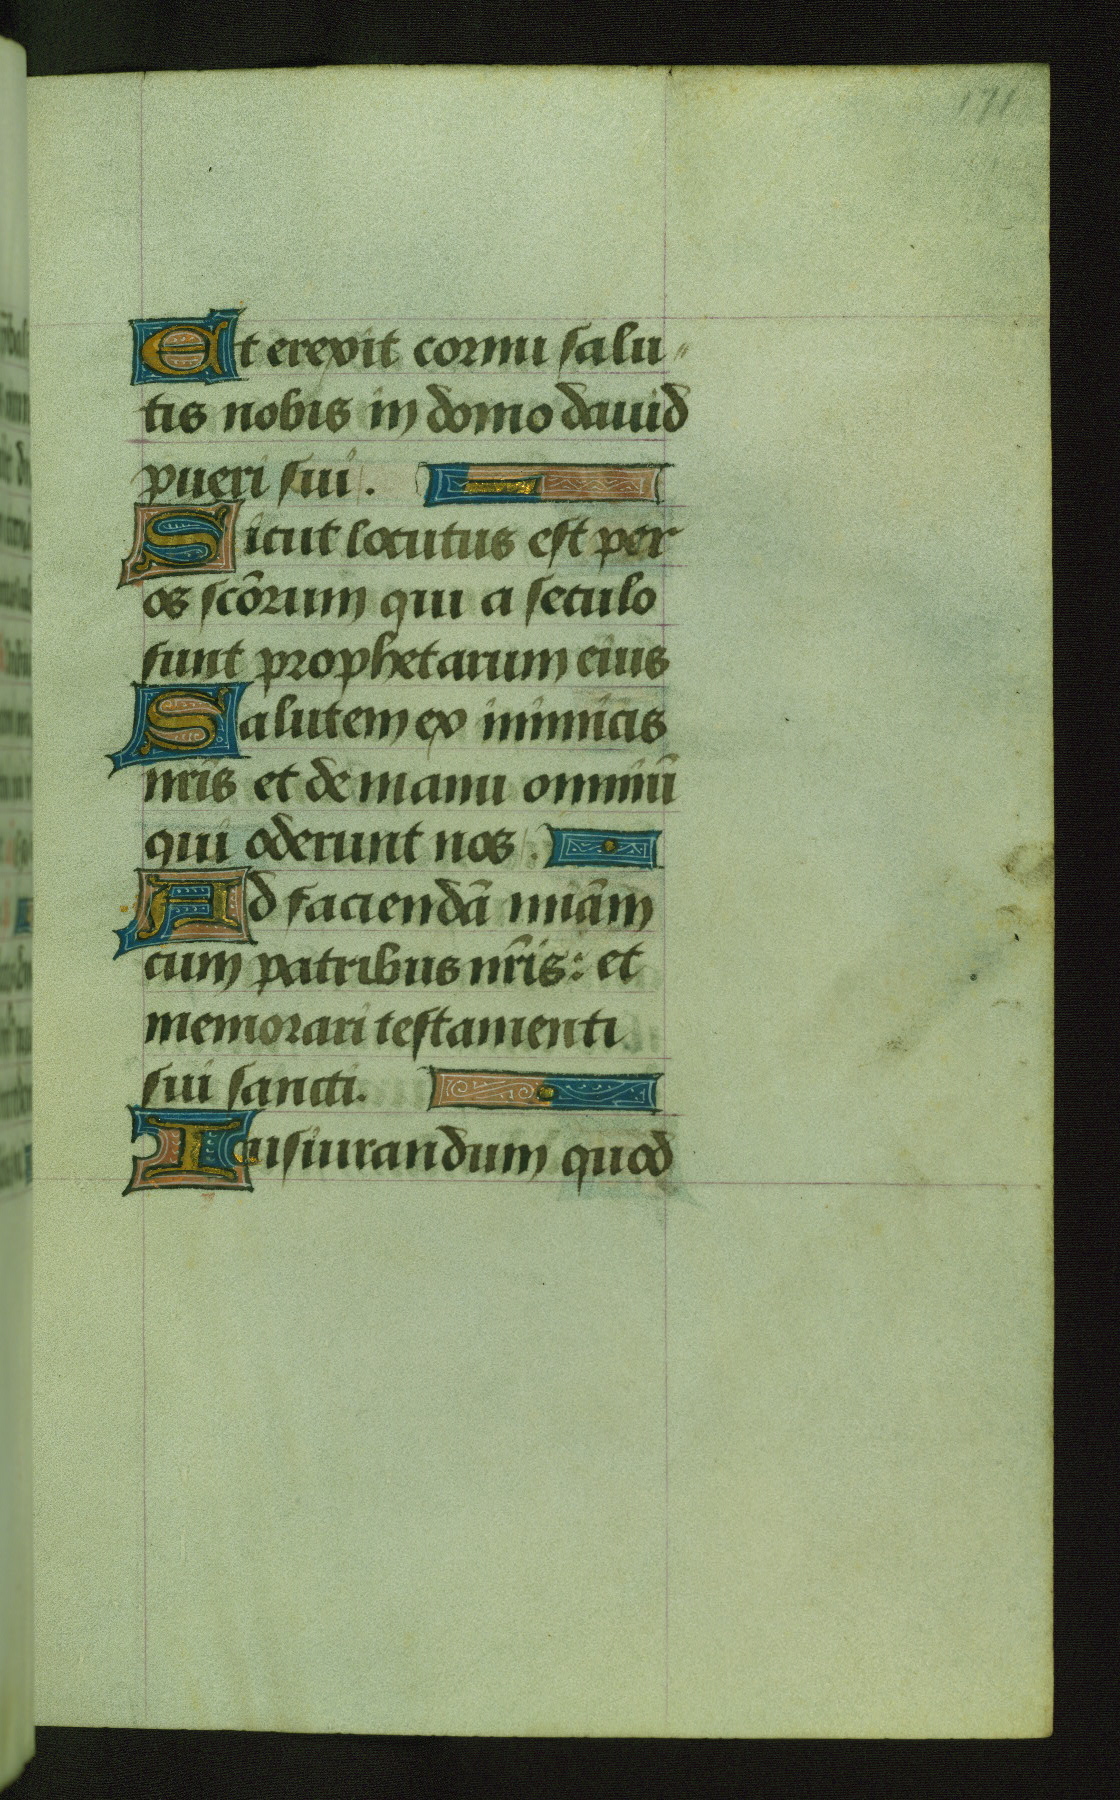 171
Et erexit cornu salu-
tis nobis in domo dauid
pueri sui.
Sicut locutus est per
os scōrum qui a seculo
sunt prophetarum eius
Salutem ex inimicis
nr̄is et de manu omniū
qui oderunt nos.
Ad faciendā miām
cum patribus nr̄is: et
memorari testamenti
sui sancti.
Iusiurandum quod